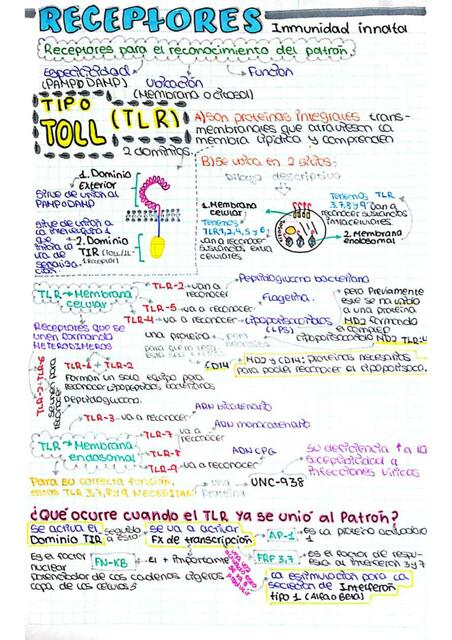 RECEPTORES Inmunidad innata
Receptores para el reconocimiento del patrón.
Especificidad Ubicación Función
(PAMP o DAMP) (Membrana o citosol)
TIPO
TOLL (TLR)
A) Son proteinas integrales trans-
membranales que atraviesan la
membra lipidica y comprenden
2 dominios.
B) Se ubica en 2 sitios:
Dibujo descriptivo
1. Dominio
Exterior
Sitio de union al
PAMP o DAMP
Sitio de union a
que
inicia la
via de
2. Dominio
TIR
1. Membrana
celular
Tenemos
van a reconocer
celulares
Tenemos TLR
3,7,8 y 9 van a
reconocer sustancias
intracelulares
2. Membrana
endosomal
TLR → Membrana
celular
TLR-2 van a
reconocer
Peptidoglucano bacteriano
TLR-5 van a reconocer
Flagelina.
TLR-4 van a reconocer Lipopolisacaridos
(LPS)
pero Previamente
este se ha unido
a una proteina
MD2 formando
el complejo
lipopolisacarido MD2 TLR-4
una proteina
CD14
MD2 y CD14: Proteinas necesarias
para poder reconocer el lipopolisaca.
Receptores que se
unen formando
HETERODIMEROS
TLR-2 + TLR-6
se unen para
reconocer
TLR-1 + TLR-2
Forman un solo equipo para
reconocer lipopeptidos bacterianos
Peptidoglucano
TLR → Membrana
endosomal
TLR-3 van a reconocer
ARN bicatenario
TLR-7
TLR-8
va a
reconocer
ARN monocatenario
TLR-9 va a reconocer
ADN CPG
Para su correcta función,
estos TLR 3,7,8 y 9 NECESITAN
una
Proteína
UNC-938
su deficiencia ↑ a la
suceptibilidad a
infecciones viricas
¿QUÉ OCURRE cuando el TLR ya se unió al Patrón?
Se activa el
Dominio TIR
seguido
a esto
se va a activar
Fx de transcripción
AP-1 es la proteina activadora
1
FRF 3,7 es el factor de respu-
esta al interferon 3 y 7
el + importante
FN-KB
Es el factor
nuclear
potenciador de las cadenas ligeras
de las celulas B
La estimulación para la
secreción de Interferón
tipo 1 (Alfa o Beta)